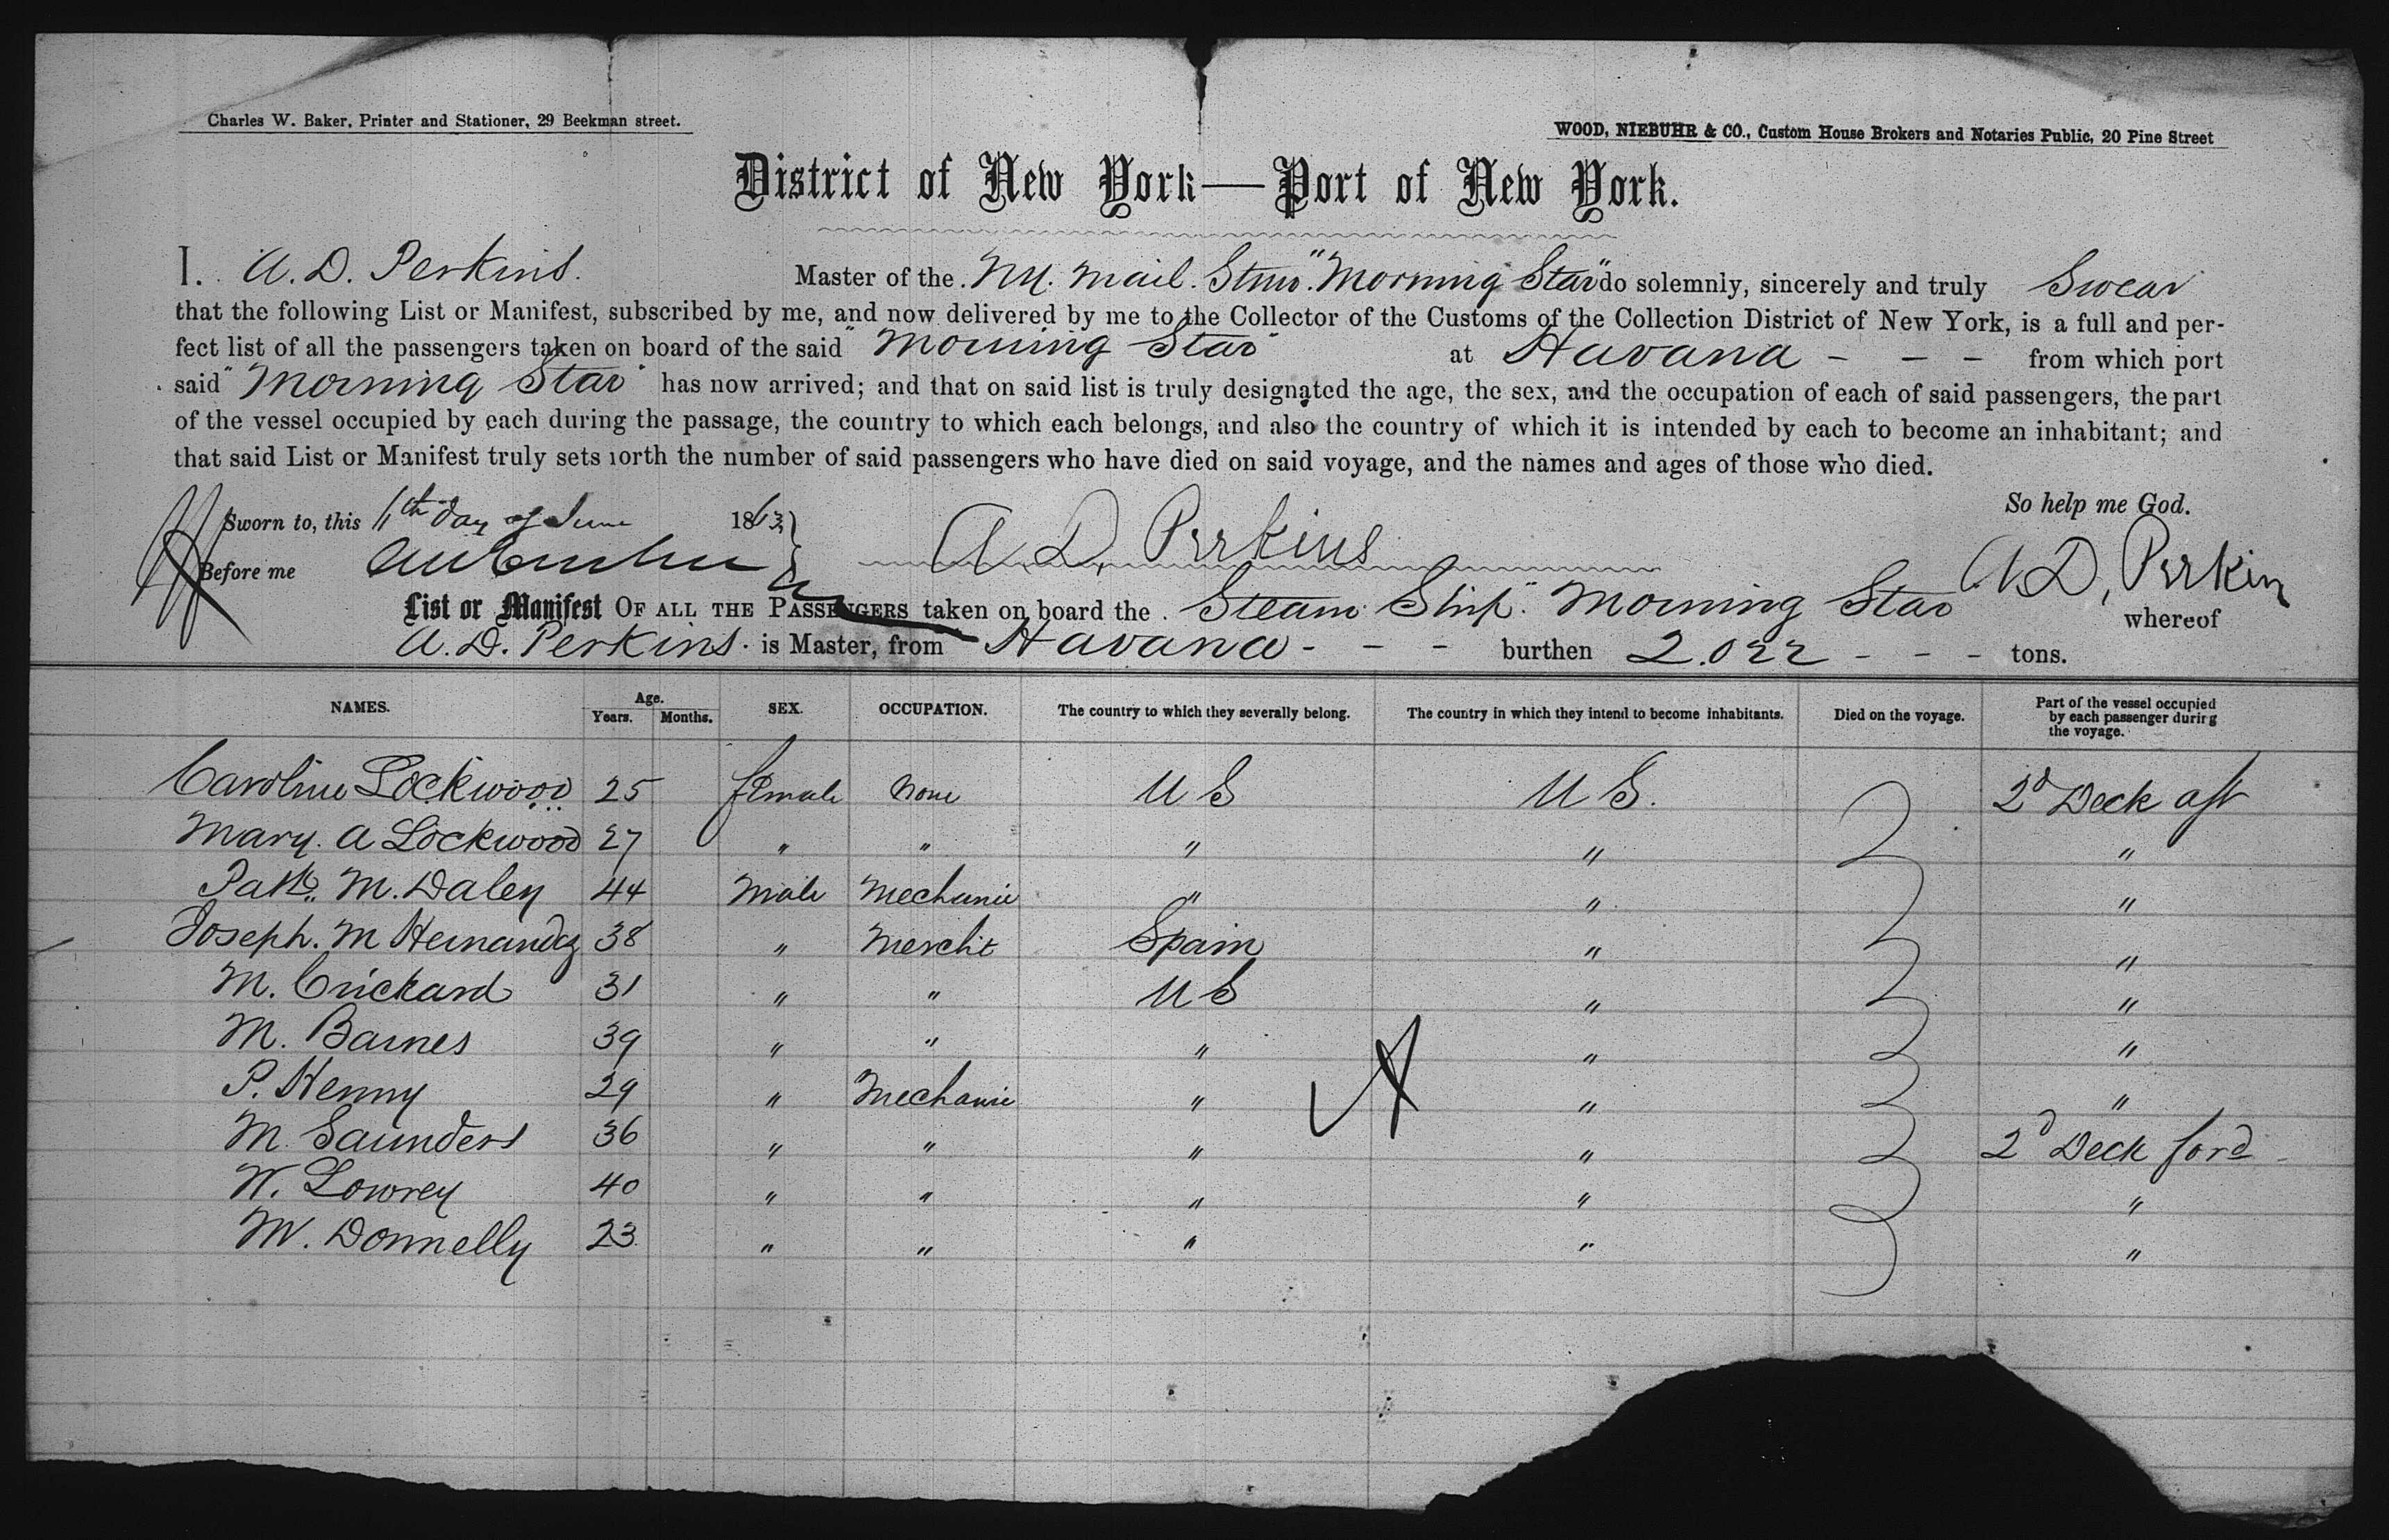 Charles W. Baker, Printer and Stationer, 29 Beekman street.
WOOD, NIEBUHR & CO., Custom House Brokers and Notaries Public, 20 Pine Street
District of New York—Port of New York.
I. A. D. Perkins. Master of the N.Y. Mail. Stmr. "Morning Star" do solemnly, sincerely and truly Swear
that the following List or Manifest, subscribed by me, and now delivered by me to the Collector of the Customs of the Collection District of New York, is a full and per-
fect list of all the passengers taken on board of the said "Morning Star" at Havana - - - from which port
said "Morning Star" has now arrived; and that on said list is truly designated the age, the sex, and the occupation of each of said passengers, the part
of the vessel occupied by each during the passage, the country to which each belongs, and also the country of which it is intended by each to become an inhabitant; and
that said List or Manifest truly sets forth the number of said passengers who have died on said voyage, and the names and ages of those who died.
So help me God.
Sworn to, this 11th day of June 1863
A. D. Perkins
Before me
A D, Perkins
List or Manifest OF ALL THE PASSENGERS taken on board the Steam Ship. "Morning Star whereof
A. D. Perkins. is Master, from Havana - - - burthen 2.022 - - - tons.
NAMES. Age. Years. Months. SEX. OCCUPATION. The country to which they severally belong. The country in which they intend to become inhabitants. Died on the voyage. Part of the vessel occupied by each passenger during the voyage.
Caroline Lockwood 25 female none U S U S. 2d Deck aft
Mary. A Lockwood 27 " " " " "
Patk. M. Daley 44 Male Mechanic " " "
Joseph. M Hernandez 38 " Mercht Spain " "
M. Crickard 31 " " U S " "
M. Barnes 39 " " " " "
P. Henny 29 " Mechanic " " "
M. Saunders 36 " " " " 2d Deck ford
W. Lowrey 40 " " " " "
M. Donnelly 23 " " " " "